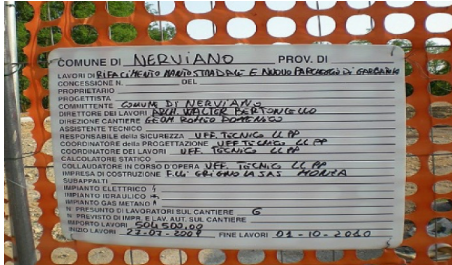 COMUNE DI NERVIANO PROV. DI
LAVORI DI RIFACIMENTO MANTO STRADALE E NUOVO PARCHEGGIO DI
CONCESSIONE N. DEL
PROPRIETARIO
PROGETTISTA
COMMITTENTE COMUNE DI NERVIANO
DIRETTORE DEI LAVORI ARCH. WALTER BERTONCELLO
DIREZIONE CANTIERE GEOM ROMEO DOMENICO
ASSISTENTE TECNICO
RESPONSABILE della SICUREZZA UFF. TECNICO LL PP
COORDINATORE della PROGETTAZIONE UFF TECNICO LL PP
COORDINATORE DEI LAVORI UFF. TECNICO LL PP
CALCOLATORE STATICO
COLLAUDATORE IN CORSO D'OPERA UFF. TECNICO LL PP
IMPRESA DI COSTRUZIONE F.LLI SAS MONZA
SUBAPPALTI
IMPIANTO ELETTRICO
IMPIANTO IDRAULICO
IMPIANTO GAS METANO
N° PRESUNTO DI LAVORATORI SUL CANTIERE 6
N° PREVISTO DI IMPR. E LAV. AUT. SUL CANTIERE
IMPORTO LAVORI 504.500,00
INIZIO LAVORI 27-07-2009 FINE LAVORI 01-10-2010